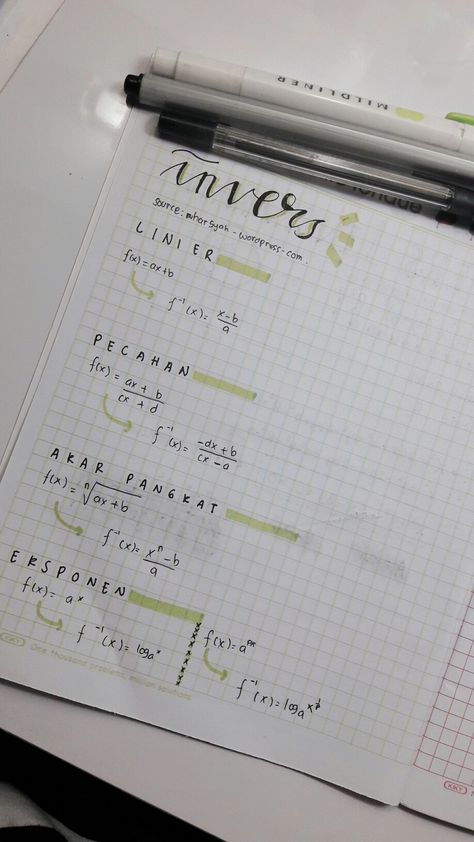 MILDLINER
invers
source: mharsyah-wordpress-com.
LINIER
f(x) = ax+b
f⁻¹(x) = (x-b)/a
PECAHAN
f(x) = (ax + b)/(cx + d)
f⁻¹(x) = (-dx + b)/(cx - a)
AKAR PANGKAT
f(x) = ⁿ√(ax+b)
f⁻¹(x) = (xⁿ-b)/a
EKSPONEN
f(x) = aˣ
f⁻¹(x) = log aˣ
f(x) = aᵖˣ
f⁻¹(x) = log a
KIKY One thousand problems, million solutions
KIKY